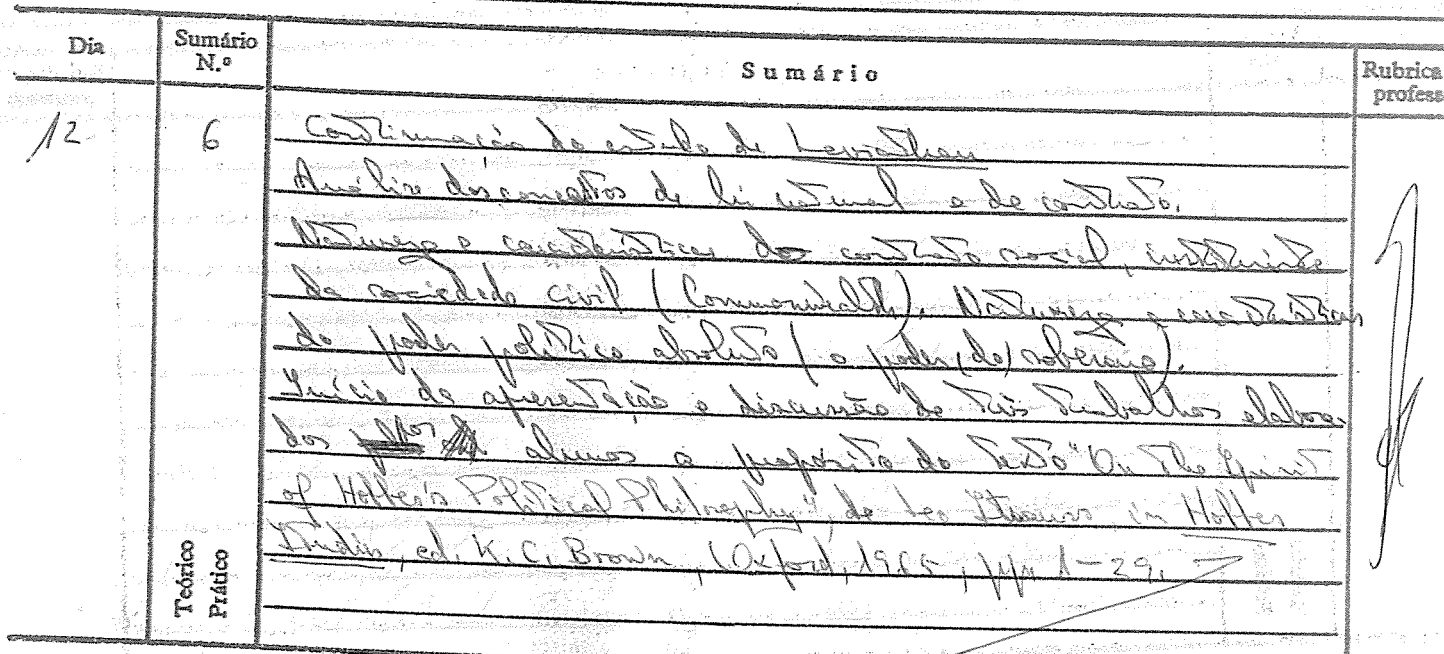 Dia
Sumário N.º
Sumário
Rubrica
profess
12
6
Continuação do estudo de Leviathan
Análise dos conceitos de lei natural e de contrato.
Natureza e características do contrato social, instituinte
da sociedade civil (Commonwealth). Natureza e características
do poder político absoluto (o poder (do) soberano).
Início da apresentação e discussão de três trabalhos elabora-
dos por alunos a propósito do texto "On the Spirit
of Hobbes's Political Philosophy", de Leo Strauss, in Hobbes
Studies, ed. K. C. Brown, (Oxford, 1965, pp. 1-29.
Teórico
Prático